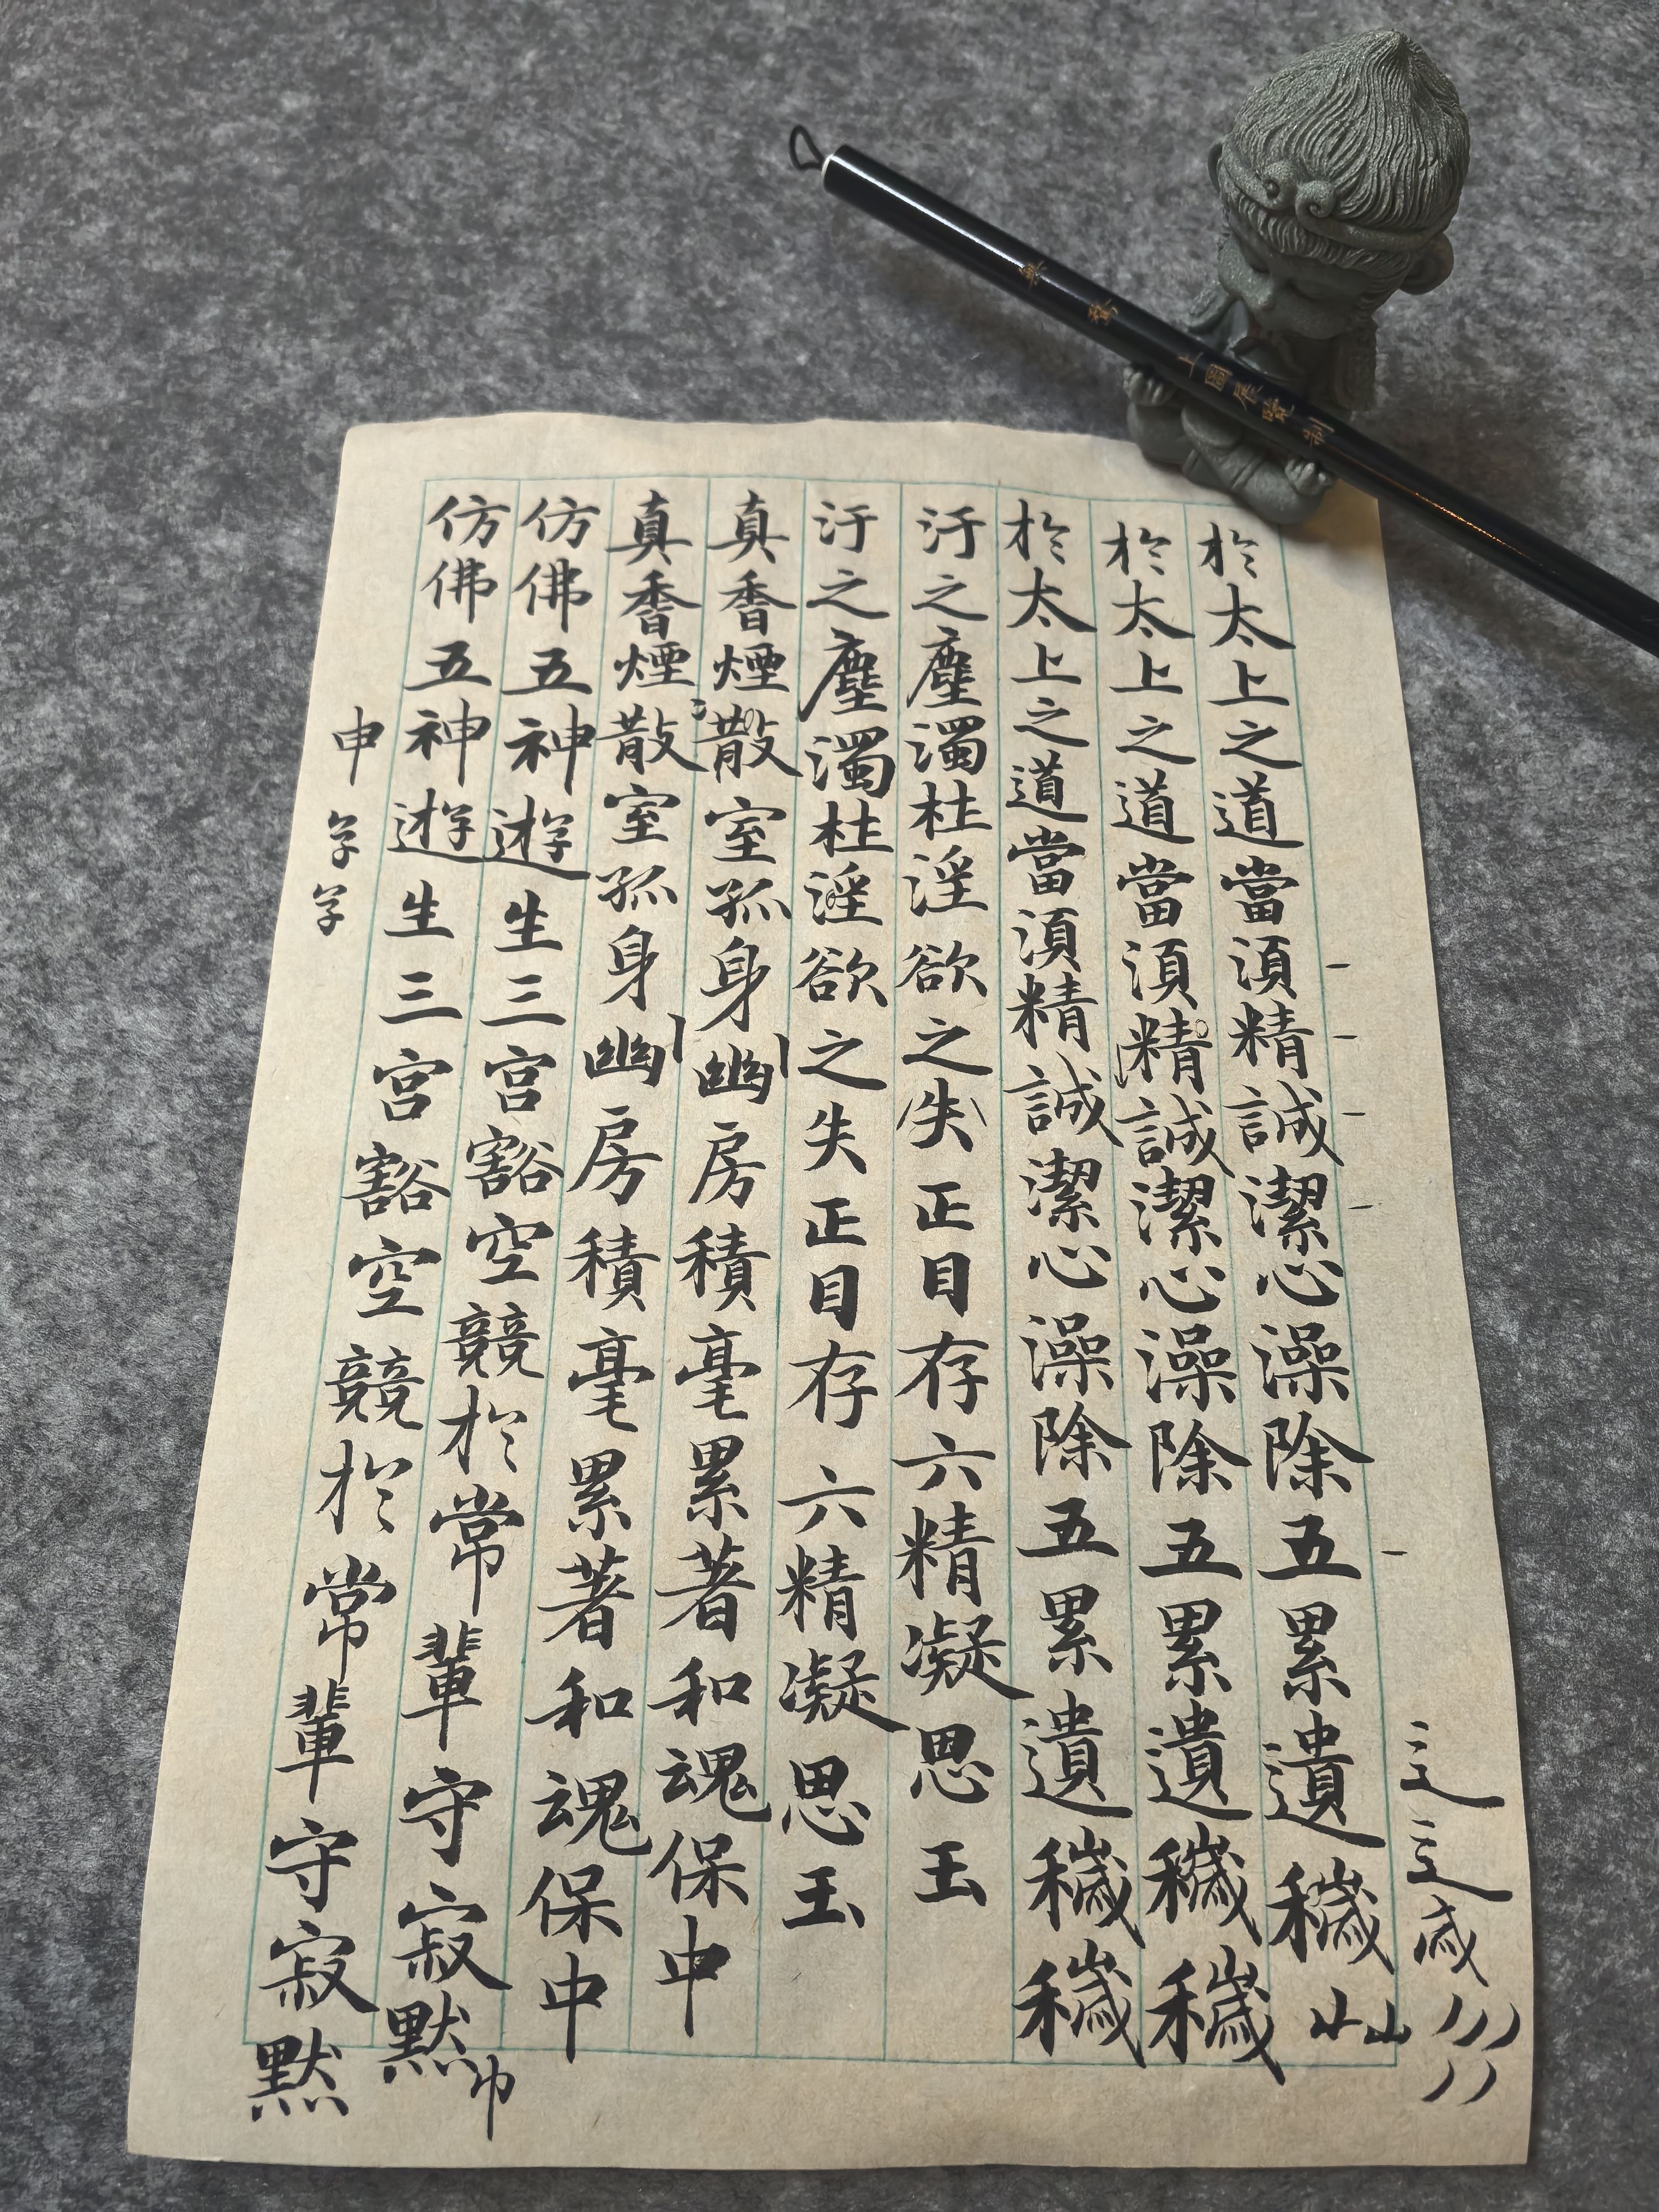 於太上之道當湏精誠潔心澡除五累遺穢
於太上之道當湏精誠潔心澡除五累遺穢穢
於太上之道當湏精誠潔心澡除五累遺穢穢
汙之塵濁杜淫欲之失正目存六精凝思玉
汙之塵濁杜淫欲之失正目存六精凝思玉
真香煙散室孤身幽房積毫累著和魂保中
真香煙散室孤身幽房積毫累著和魂保中
仿佛五神遊生三宮豁空競於常輩守寂默
仿佛五神遊生三宮豁空競於常輩守寂默
申
上圖展覽制